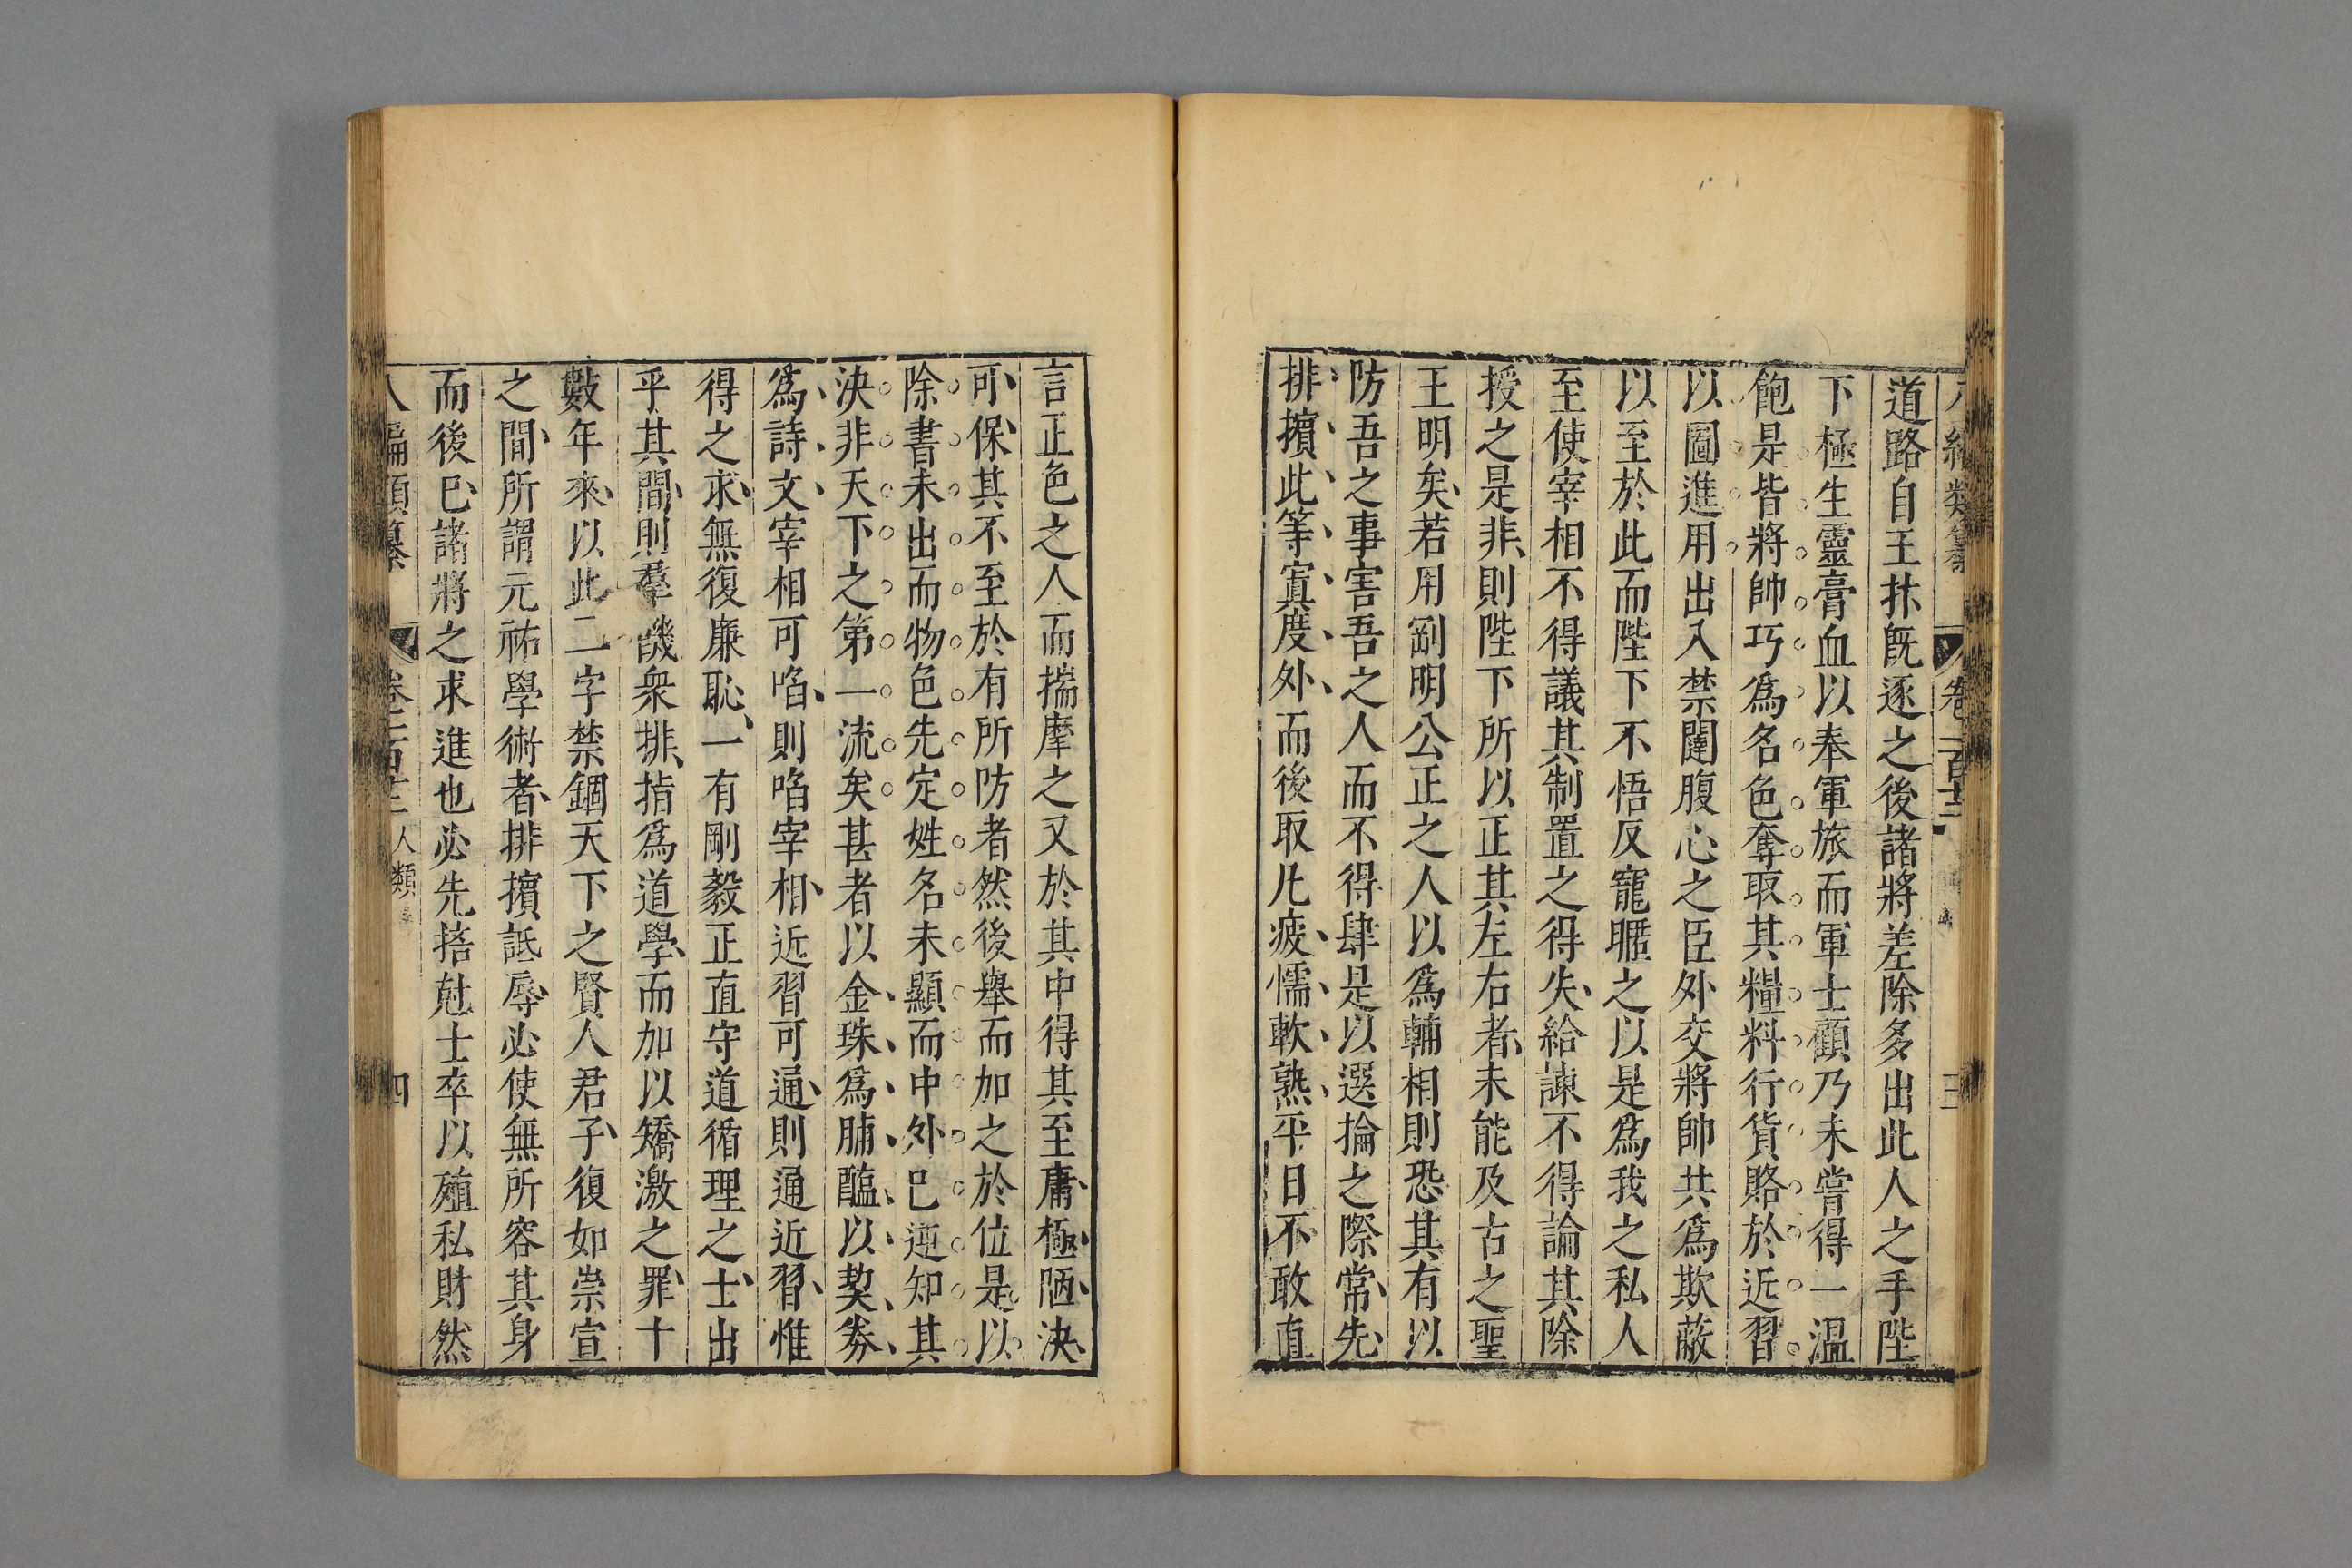 類纂 卷二百十三 三
道路自王抹旣逐之後諸將差除多出此人之手陛
下極生靈膏血以奉軍旅而軍士顧乃未嘗得一溫
飽是皆將帥巧爲名色奪取其糧料行貨賂於近習
以圖進用出入禁闥腹心之臣外交將帥共爲欺蔽
以至於此而陛下不悟反寵暱之以是爲我之私人
至使宰相不得議其制置之得失給諫不得論其除
授之是非則陛下所以正其左右者未能及古之聖
王明矣若用剛明公正之人以爲輔相則恐其有以
防吾之事害吾之人而不得肆是以選掄之際常先
排擯此等寘度外而後取凡疲懦軟熟平日不敢直
言正色之人而揣摩之又於其中得其至庸極陋決
可保其不至於有所防者然後舉而加之於位是以
除書未出而物色先定姓名未顯而中外已逆知其
決非天下之第一流矣甚者以金珠爲脯醢以契券
爲詩文宰相可啗則啗宰相近習可通則通近習惟
得之求無復廉恥一有剛毅正直守道循理之士出
乎其間則羣譏衆排指爲道學而加以矯激之罪十
數年來以此二字禁錮天下之賢人君子復如崇宣
之間所謂元祐學術者排擯詆辱必使無所容其身
而後已諸將之求進也必先掊尅士卒以殖私財然
八編類纂 卷二百十三 人類 四